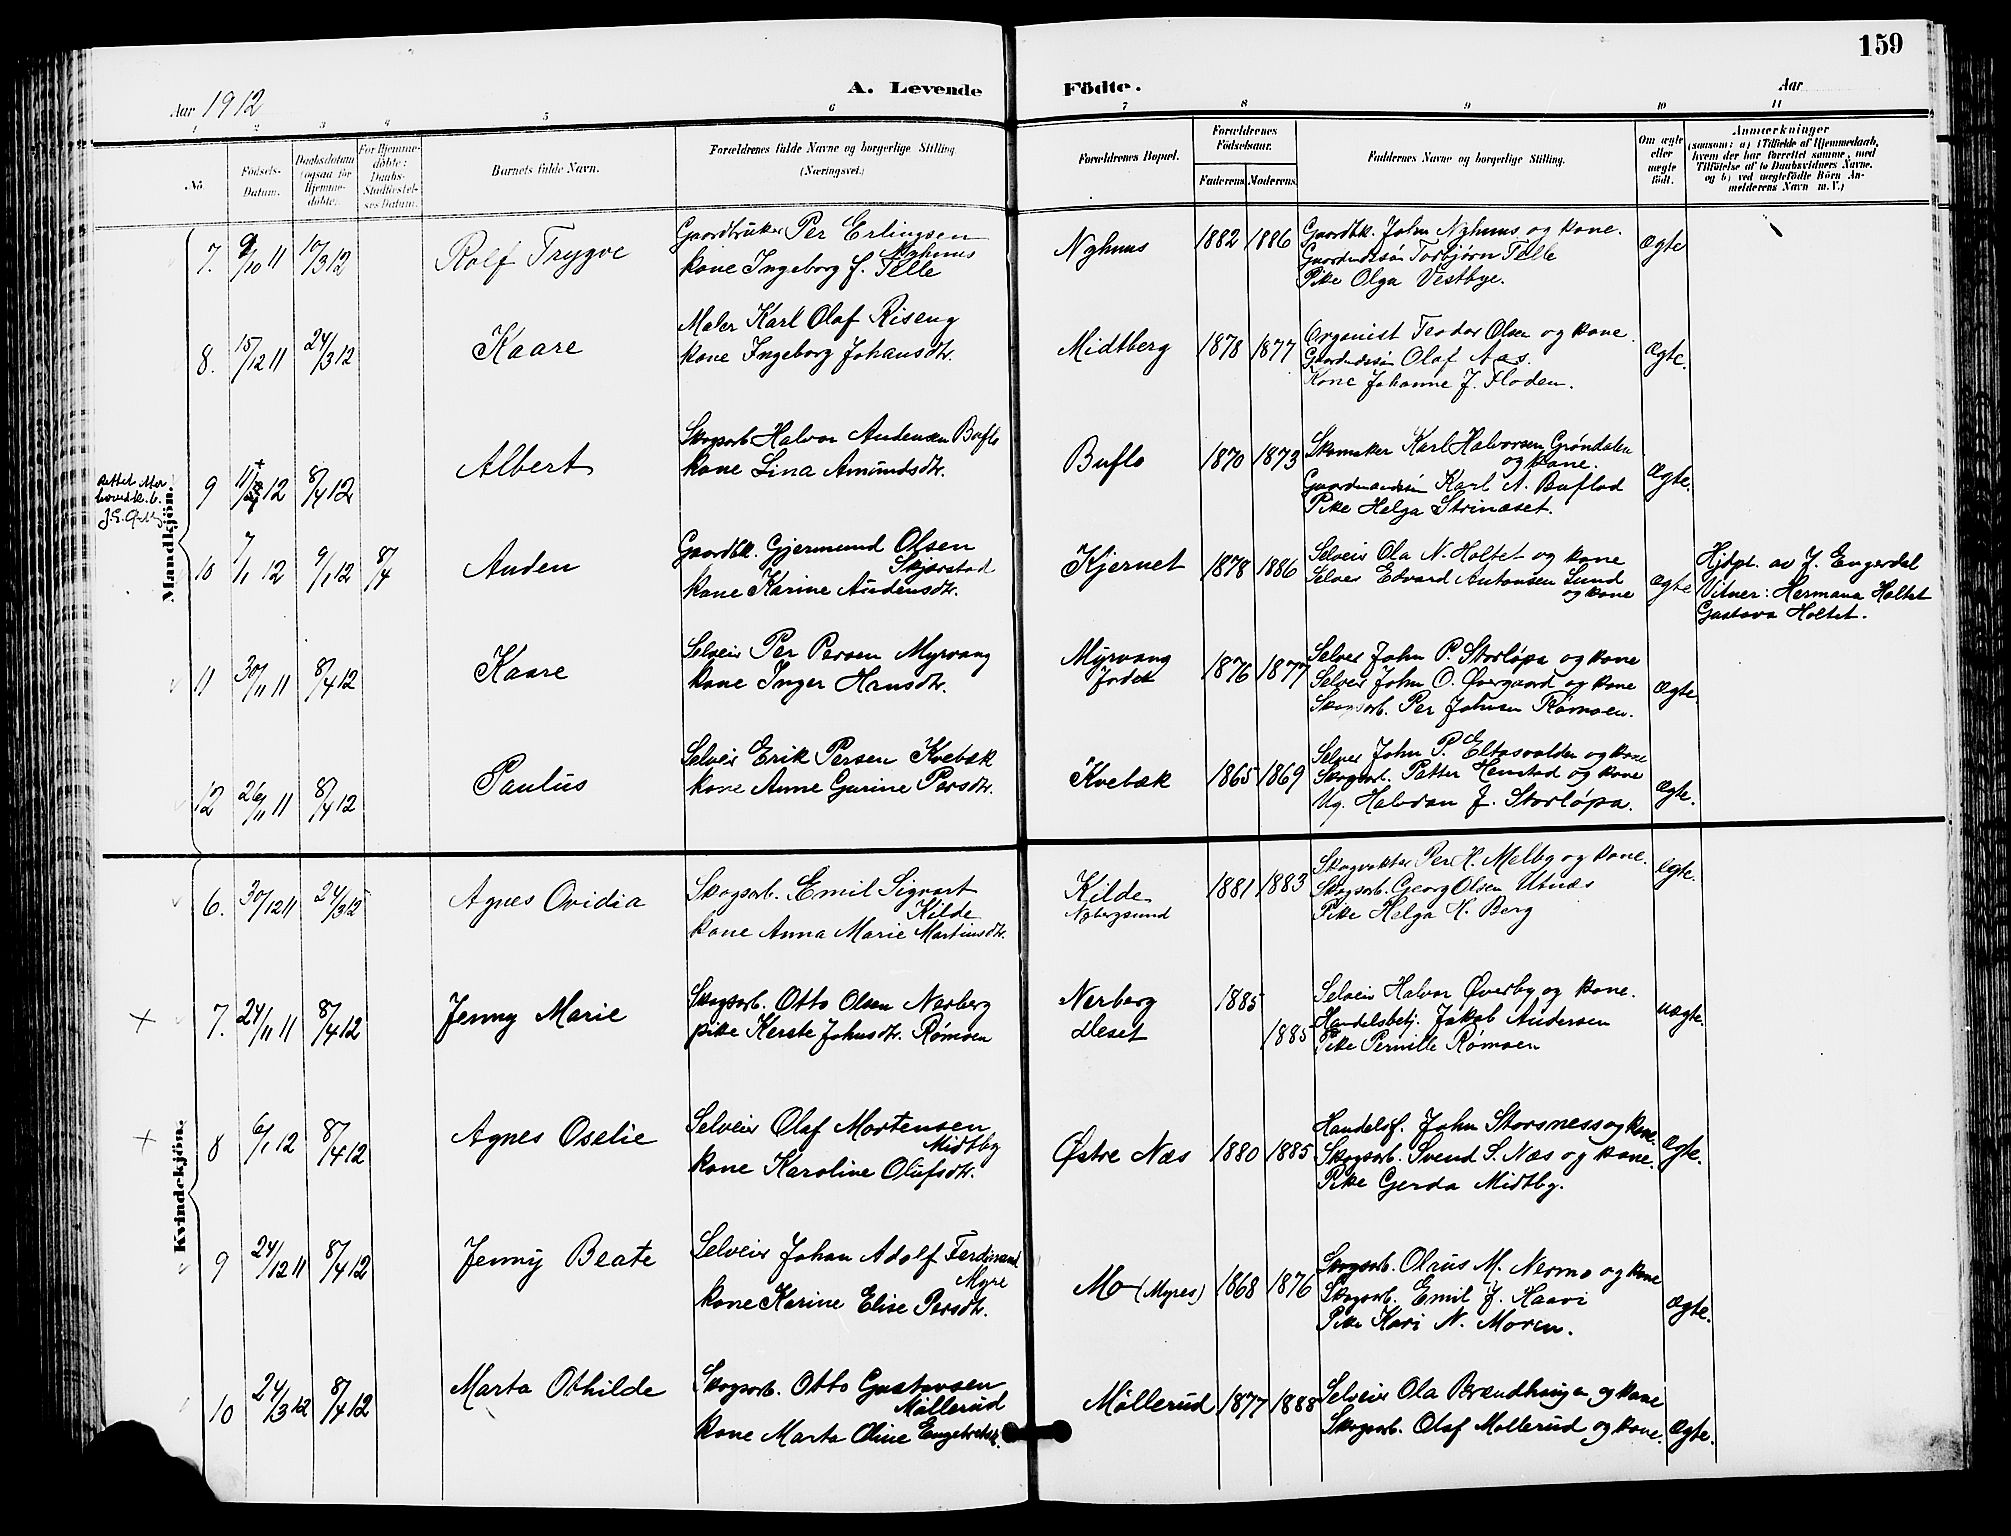 159
Aar 1912
A. Levende Födte.
Aar
1 2 3 4 5 6 7 8 9 10 11
No.
Födsels-Datum.
Daabsdatum (ogsaa for Hjemme-döbte).
For Hjemme-döbte: Daabs-Stadfæstel-ses Datum.
Barnets fulde Navn.
Forældrenes fulde Navne og borgerlige Stilling (Næringsvei.)
Forældrenes Bopæl.
Forældrenes Födselsaar.
Faderens. Moderens.
Faddernes Navne og borgerlige Stilling.
Om ægte eller uægte födt.
Anmærkninger
(saasom: a) i Tilfælde af Hjemmedaab,
hvem der har forrettet samme, med
Tilföielse af to Daabsvidners Navne.
og b) ved uægtefödte Börn An-
melderens Navn m. V.)
Mandkjön.
7. 9/10 11 10/3 12 Rolf Trygve
Gaardbruker Per Erlingsen
Nyhuus
kone Ingeborg f. Telle
Nyhuus 1882 1886
Gaardbk. John Nyhuus og kone.
Gaardmdssøn Torbjørn Telle
Pike Olga Vestbye.
Ægte
8. 15/12 11 24/3 12 Kaare
Maler Karl Olaf Riseng
kone Ingeborg Johansdtr.
Midtberg 1878 1877
Organist Teodor Olsen og kone.
Gaardmdssøn Olaf Aas.
Kone Johanne J. Floden.
Ægte.
9 12 8/4 12 Albert
Skogsarb. Halvor Andersen Buflo
kone Lina Amundsdtr.
Buflo 1870 1873
Skomaker Karl Halvorsen Grøndalen
og kone.
Gaardmandssøn Karl A. Buflod
Pike Helga Strinæset.
Ægte.
10 7/1 12 9/1 12 8/4 Auden
Gaardbk. Gjermund Olsen
Skjærstad
kone Karine Audensdtr.
Kjernet 1878 1886
Selveier Ola N. Holtet og kone
Selveier Edvard Antonsen Lund
og kone
Ægte
Hjdpt. av J. Engerdal
Vitner: Hermana Holtet
Gustava Holtet.
11 30/11 11 8/4 12 Kaare
Selveier Per Persen Myrvang
kone Inger Hansdtr.
Myrvang
Jordet
1876 1877
Selveier John P. Storløpa og kone
Selveier John O. Øvergaard og kone
Skogsarb. Per Johnsen Rømoen.
Ægte.
12 26/11 11 8/4 12 Paulus
Selveier Erik Persen Kvebæk
kone Anne Gurine Persdtr.
Kvebæk 1865 1869
Selveier John P. Eltasvolden og kone
Skogsarb. Petter Hemstad og kone
Ug. Halvdan J. Storløpa.
Ægte.
Kvindekjön.
6. 30/12 11 24/3 12 Agnes Ovidia
Skogsarb. Emil Sigvart
Kilde
kone Anna Marie Martinsdtr.
Kilde
Nybergsund
1881 1883
Skogvokter Per H. Melby og kone.
Skogsarb. Georg Olsen Utnæs
Pike Helga H. Berg
Ægte.
7. 24/11 11 8/4 12 Jenny Marie
Skogsarb. Otto Olsen Nerberg
pike Kerste Johnsdtr. Rømoen
Nerberg
Deset
1885
1885
Selveier Halvor Øverby og kone.
Handelsbetj. Jakob Andersen
Pike Pernille Rømoen
uægte.
8 6/1 12 8/4 12 Agnes Oselie
Selveier Olaf Mortensen
Midtby
kone Karoline Olufsdtr.
Østre Næs 1880 1885
Handelsf. John Storsness og kone.
Skogsarb. Svend S. Næs og kone.
Pike Gerda Midtby.
Ægte.
9 24/12 11 8/4 12 Jenny Beate
Selveier Johan Adolf Ferdinand
Myre
kone Karine Elise Persdtr.
Mo (Myres) 1868 1876
Skogsarb. Olaus M. Nermo og kone
Skogsarb. Emil J. Haavi
Pike Kari N. Moren.
Ægte.
10 24/3 12 8/4 12 Marta Othilde
Skogsarb. Otto Gustavsen
Møllerud
kone Marta Oline Engebretsdtr.
Møllerud 1877 1888
Selveier Ola Brændhaugen og kone
Skogsarb. Olaf Møllerud og kone.
Ægte.